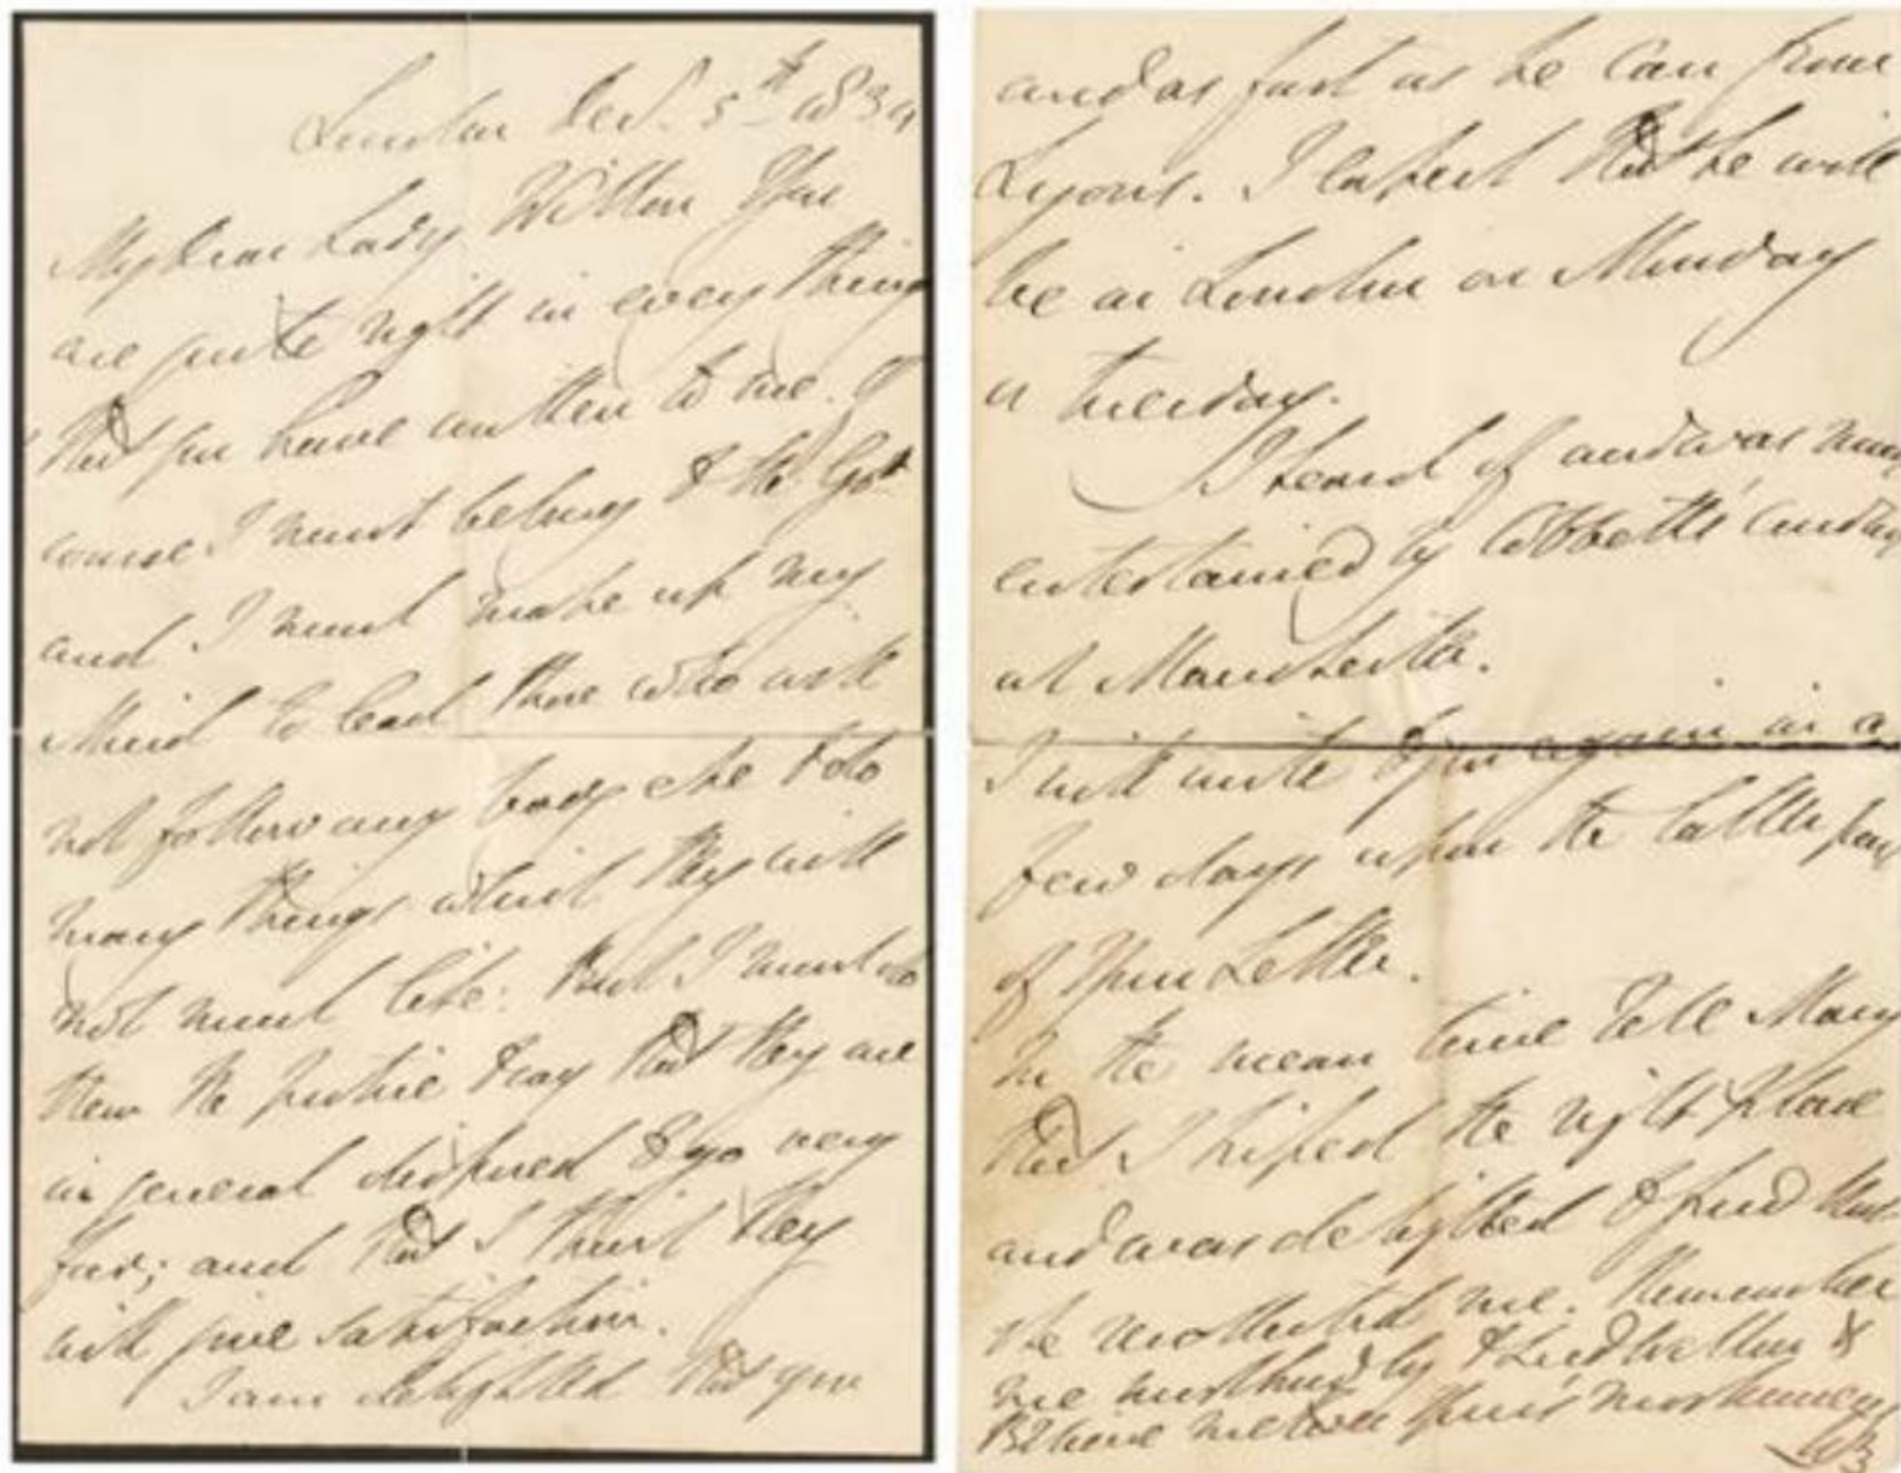 London Dec. 5th 1834
My Dear Lady Wilton You
are quite right in every thing
that you have written to me. Of
course I must belong to the Govt
and I must make up my
Mind to lead those who will
not follow any body else & do
many things which they will
not much like: But I must do
them the justice to say that they are
in general disposed to go very
far; and that I think they
will give satisfaction.
I am delighted that you
and as fast as he can from
Lyons. I expect that he will
be in London on Monday
or Tuesday.
I heard of and was much
entertained by Cobbett's
at Manchester.
I will write to you again in a
few days upon the latter part
of Your Letter.
In the mean time tell Mary
that I the right place
and was delighted to find that
she recollected me. Remember
me most kindly to Lord Wilton &
Believe me Ever Yours most sincerely
W